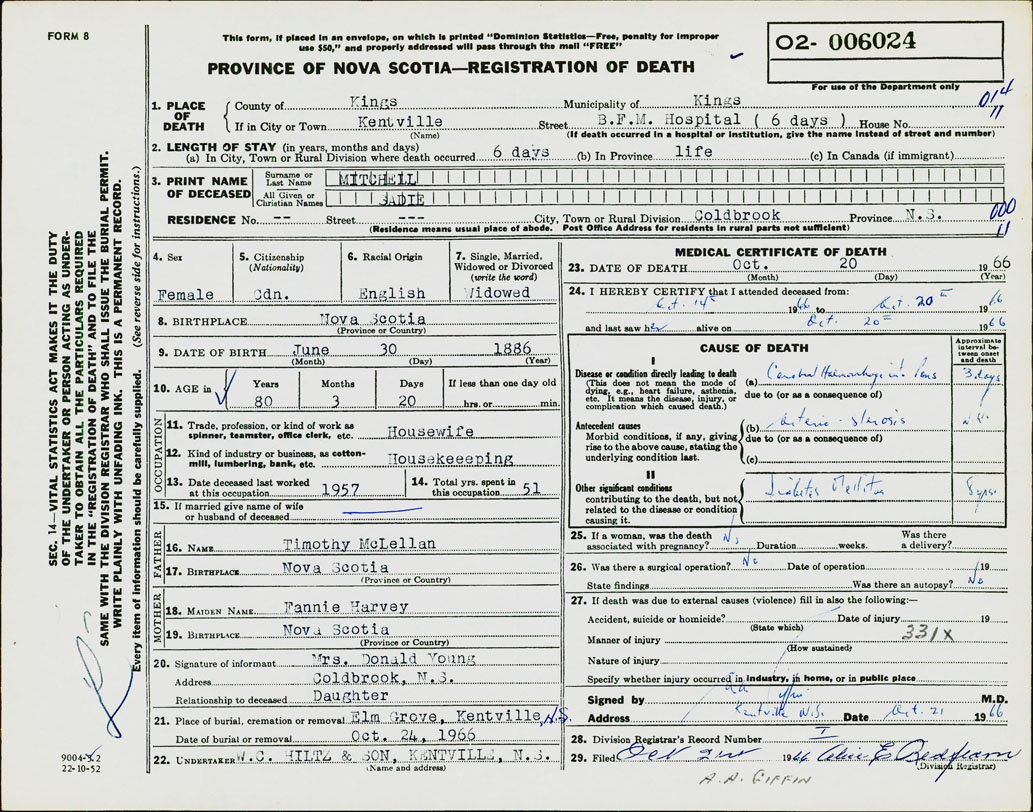 FORM 8
This form, if placed in an envelope, on which is printed "Dominion Statistics—Free, penalty for improper
use $50," and properly addressed will pass through the mail "FREE"
02- 006024
For use of the Department only
PROVINCE OF NOVA SCOTIA—REGISTRATION OF DEATH
SEC. 14—VITAL STATISTICS ACT MAKES IT THE DUTY
OF THE UNDERTAKER OR PERSON ACTING AS UNDER-
TAKER TO OBTAIN ALL THE PARTICULARS REQUIRED
IN THE "REGISTRATION OF DEATH" AND TO FILE THE
SAME WITH THE DIVISION REGISTRAR WHO SHALL ISSUE THE BURIAL PERMIT.
WRITE PLAINLY WITH UNFADING INK. THIS IS A PERMANENT RECORD.
Every item of information should be carefully supplied. (See reverse side for instructions.)
1. PLACE OF DEATH
County of Kings Municipality of Kings 014
If in City or Town Kentville Street B.F.M. Hospital ( 6 days ) House No. 11
(Name) (If death occurred in a hospital or institution, give the name instead of street and number)
2. LENGTH OF STAY (in years, months and days)
(a) In City, Town or Rural Division where death occurred 6 days (b) In Province life (c) In Canada (if immigrant)
3. PRINT NAME OF DECEASED
Surname or Last Name MITCHELL
All Given or Christian Names SADIE
RESIDENCE No. -- Street --- City, Town or Rural Division Coldbrook Province N.S. 000
(Residence means usual place of abode. Post Office Address for residents in rural parts not sufficient) 11
4. Sex Female
5. Citizenship (Nationality) Cdn.
6. Racial Origin English
7. Single, Married, Widowed or Divorced (write the word) Widowed
8. BIRTHPLACE Nova Scotia
(Province or Country)
9. DATE OF BIRTH June 30 1886
(Month) (Day) (Year)
10. AGE in Years Months Days If less than one day old
80 3 20 hrs. or min.
OCCUPATION
11. Trade, profession, or kind of work as
spinner, teamster, office clerk, etc. Housewife
12. Kind of industry or business, as cotton-
mill, lumbering, bank, etc. Housekeeeping
13. Date deceased last worked
at this occupation 1957
14. Total yrs. spent in
this occupation 51
15. If married give name of wife
or husband of deceased
FATHER
16. NAME Timothy McLellan
17. BIRTHPLACE Nova Scotia
(Province or Country)
MOTHER
18. MAIDEN NAME Fannie Harvey
19. BIRTHPLACE Nova Scotia
(Province or Country)
20. Signature of informant Mrs. Donald Young
Address Coldbrook, N.S.
Relationship to deceased Daughter
21. Place of burial, cremation or removal Elm Grove, Kentville, N.S.
Date of burial or removal Oct. 24, 1966
22. UNDERTAKER W.C. HILTZ & SON, KENTVILLE, N.S.
(Name and address)
9004-5.2
22-10-52
MEDICAL CERTIFICATE OF DEATH
23. DATE OF DEATH Oct. 20 1966
(Month) (Day) (Year)
24. I HEREBY CERTIFY that I attended deceased from:
Oct. 14th 1966 to Oct. 20th 1966
and last saw her alive on Oct. 20th 1966
CAUSE OF DEATH
Approximate interval between onset and death
I
Disease or condition directly leading to death
(This does not mean the mode of
dying, e.g., heart failure, asthenia,
etc. It means the disease, injury, or
complication which caused death.)
(a) Cerebral Haemorrhage into Pons 3 days
due to (or as a consequence of)
Antecedent causes
Morbid conditions, if any, giving
rise to the above cause, stating the
underlying condition last.
(b) Arterio-sclerosis
due to (or as a consequence of)
(c)
II
Other significant conditions
contributing to the death, but not
related to the disease or condition
causing it.
Diabetes Mellitus 8 yrs.
25. If a woman, was the death
associated with pregnancy? No Duration weeks. Was there
a delivery?
26. Was there a surgical operation? No Date of operation 19
State findings Was there an autopsy? No
27. If death was due to external causes (violence) fill in also the following:—
Accident, suicide or homicide? Date of injury 19
(State which)
331X
Manner of injury
(How sustained)
Nature of injury
Specify whether injury occurred in industry, in home, or in public place
Signed by M.D.
Address Kentville N.S. Date Oct. 21 1966
28. Division Registrar's Record Number I
29. Filed Oct 21st 1966
(Division Registrar)
A. A. GIFFIN